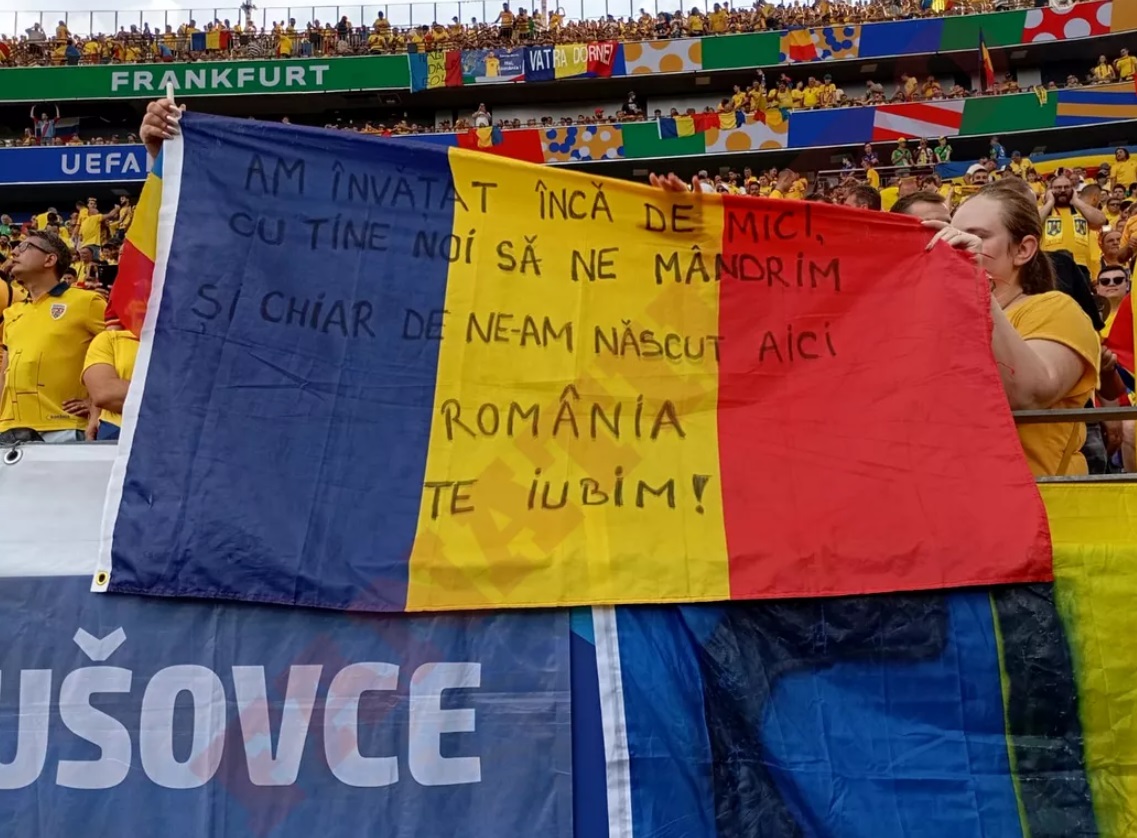 VATRA DORNEI
FRANKFURT
UEFA
AM ÎNVĂȚAT ÎNCĂ DE MICI,
CU TINE NOI SĂ NE MÂNDRIM
ȘI CHIAR DE NE-AM NĂSCUT AICI
ROMÂNIA
TE IUBIM!
UŠOVCE